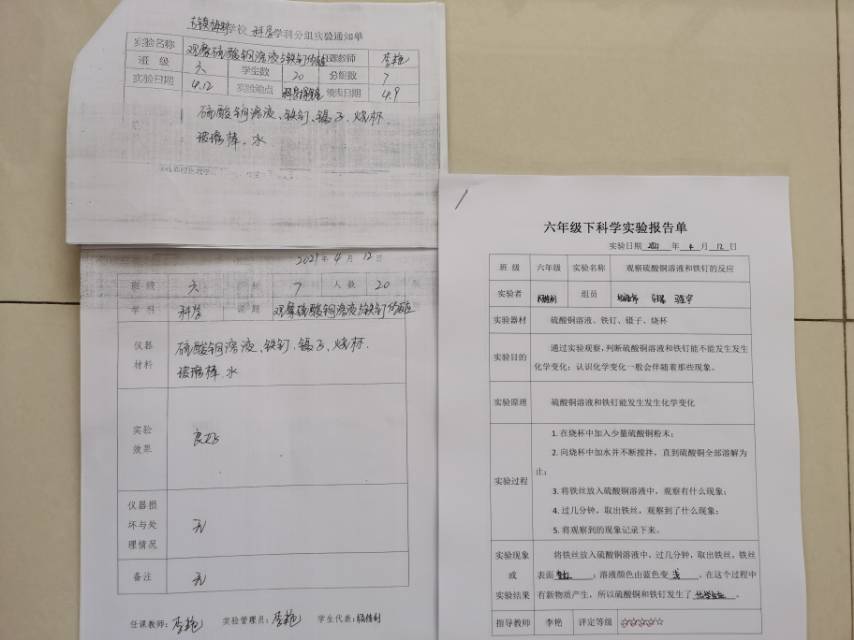 学校 科学学科分组实验通知单
实验名称 观察硫酸铜溶液与铁钉的 任课教师 李艳
班级 六 学生数 20 分组数 7
实验日期 4.12 实验地点 领表日期 4.9
硫酸铜溶液、铁钉、镊子、烧杯、
玻璃棒、水
2021年4月12日
班级 六 7 人数 20
学科 科学 课题 观察硫酸铜溶液与铁钉的
仪器材料 硫酸铜溶液、铁钉、镊子、烧杯、
玻璃棒、水
实验效果 良好
仪器损坏与处理情况 无
备注 无
任课教师：李艳 实验管理员：李艳 学生代表：
六年级下科学实验报告单
实验日期 2021 年 4 月 12 日
班级 六年级 实验名称 观察硫酸铜溶液和铁钉的反应
实验者 组员
实验器材 硫酸铜溶液、铁钉、镊子、烧杯
实验目的 通过实验观察，判断硫酸铜溶液和铁钉能不能发生发生
化学变化；认识化学变化一般会伴随着那些现象。
实验原理 硫酸铜溶液和铁钉能发生发生化学变化
实验过程
1. 在烧杯中加入少量硫酸铜粉末；
2. 向烧杯中加水并不断搅拌，直到硫酸铜全部溶解为
止；
3. 将铁丝放入硫酸铜溶液中，观察有什么现象；
4. 过几分钟，取出铁丝，观察到了什么现象；
5. 将观察到的现象记录下来。
实验现象或实验结果
将铁丝放入硫酸铜溶液中，过几分钟，取出铁丝，铁丝
表面 ；溶液颜色由蓝色变 浅 ，在这个过程中
有新物质产生，所以硫酸铜和铁钉发生了 化学变化 。
指导教师 李艳 评定等级 ☆☆☆☆☆